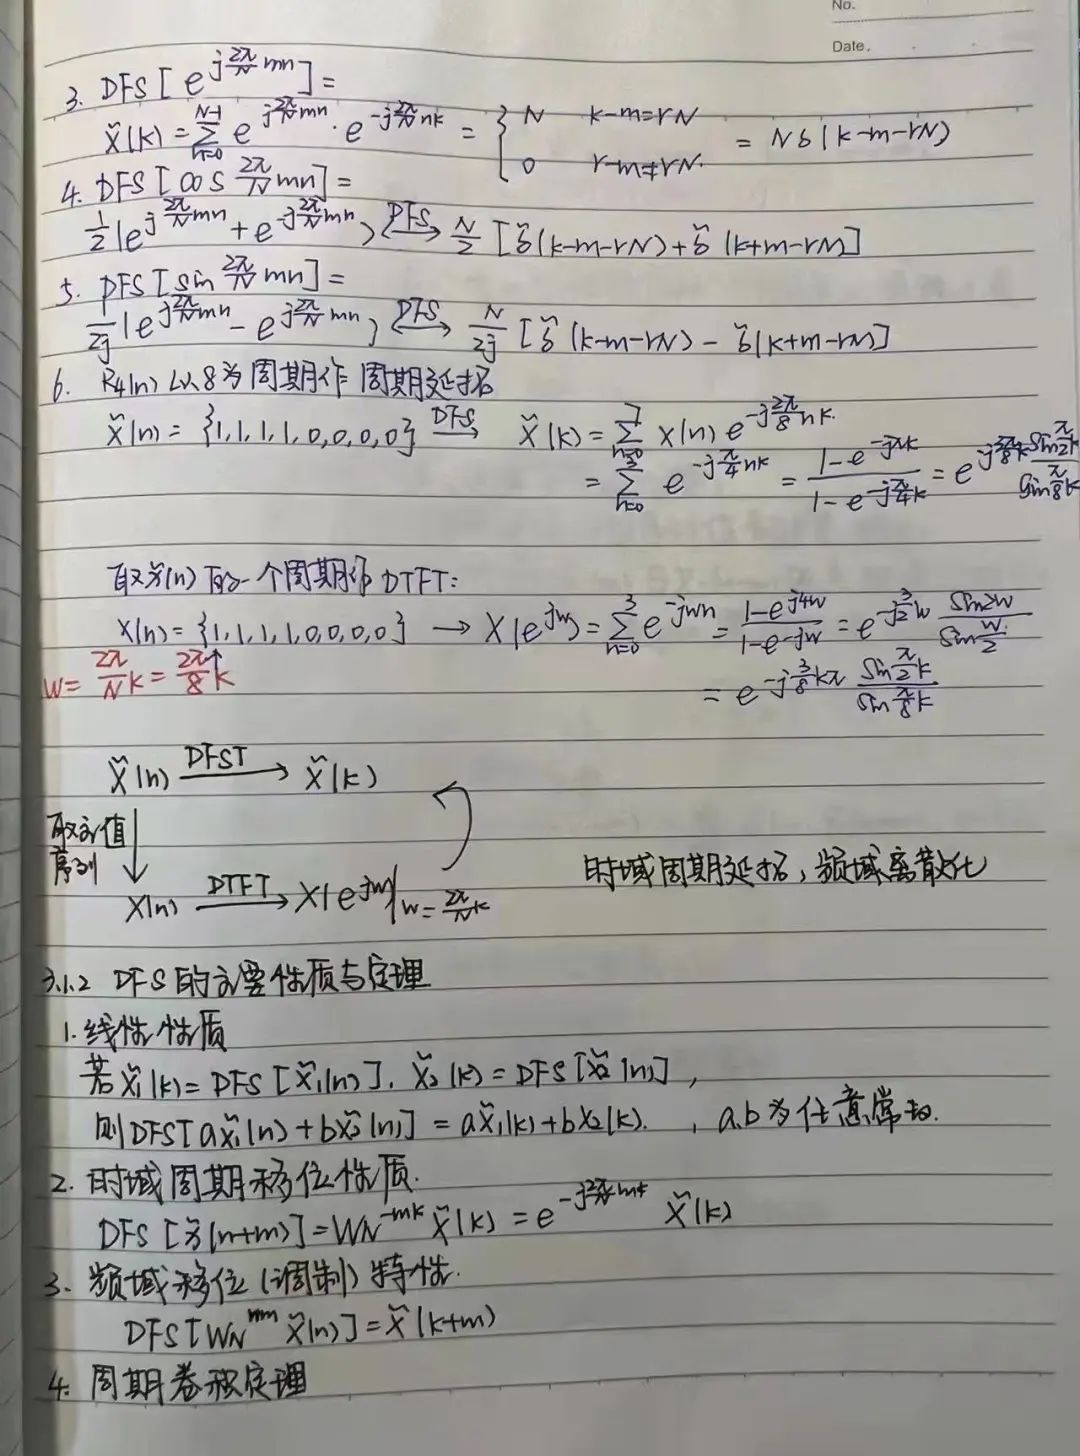 No.
Date.
3. DFS[e^{j\frac{2π}{N}mn}]=
X̃(k)=\sum_{n=0}^{N-1} e^{j\frac{2π}{N}mn}·e^{-j\frac{2π}{N}nk} = { N k-m=rN ; 0 r-m≠rN. = Nδ(k-m-rN)
4. DFS[cos\frac{2π}{N}mn]=
\frac{1}{2}(e^{j\frac{2π}{N}mn}+e^{-j\frac{2π}{N}mn}) \overset{DFS}{⟷} \frac{N}{2}[δ̃(k-m-rN)+δ̃(k+m-rN)]
5. DFS[sin\frac{2π}{N}mn]=
\frac{1}{2j}(e^{j\frac{2π}{N}mn}-e^{j\frac{2π}{N}mn}) \overset{DFS}{⟷} \frac{N}{2j}[δ̃(k-m-rN)-δ̃(k+m-rN)]
6. R4(n)以8为周期作周期延拓
X̃(n)={1,1,1,1,0,0,0,0} \overset{DFS}{⟶} X̃(k)=\sum_{n=0}^{7} x(n)e^{-j\frac{2π}{8}nk}
=\sum_{n=0}^{3} e^{-j\frac{π}{4}nk}=\frac{1-e^{-jπk}}{1-e^{-j\frac{π}{4}k}}=e^{-j\frac{3π}{8}k}\frac{sin\frac{π}{2}k}{sin\frac{π}{8}k}
取x̃(n)的一个周期作DTFT:
X(n)={1,1,1,1,0,0,0,0} → X(e^{jw})=\sum_{n=0}^{3} e^{-jwn}=\frac{1-e^{-j4w}}{1-e^{-jw}}=e^{-j\frac{3}{2}w}\frac{sin2w}{sin\frac{w}{2}}
w=\frac{2π}{N}k=\frac{2π}{8}k
=e^{-j\frac{3}{8}kπ}\frac{sin\frac{π}{2}k}{sin\frac{π}{8}k}
X̃(n) \overset{DFST}{⟶} X̃(k)
取主值
序列
X(n) \overset{DTFT}{⟶} X(e^{jw})|w=\frac{2π}{N}k
时域周期延拓,频域离散化
3.1.2 DFS的主要性质与定理
1. 线性性质
若X̃1(k)=DFS[X̃1(n)]. X̃2(k)=DFS[X̃2(n)],
则DFS[aX̃1(n)+bX̃2(n)]=aX̃1(k)+bX2(k). , a.b为任意常数.
2. 时域周期移位性质.
DFS[x̃(n+m)]=WN^{-mk}X̃(k)=e^{-j\frac{2π}{N}mk} X̃(k)
3. 频域移位(调制)特性.
DFS[WN^{nm}X̃(n)]=X̃(k+m)
4. 周期卷积定理